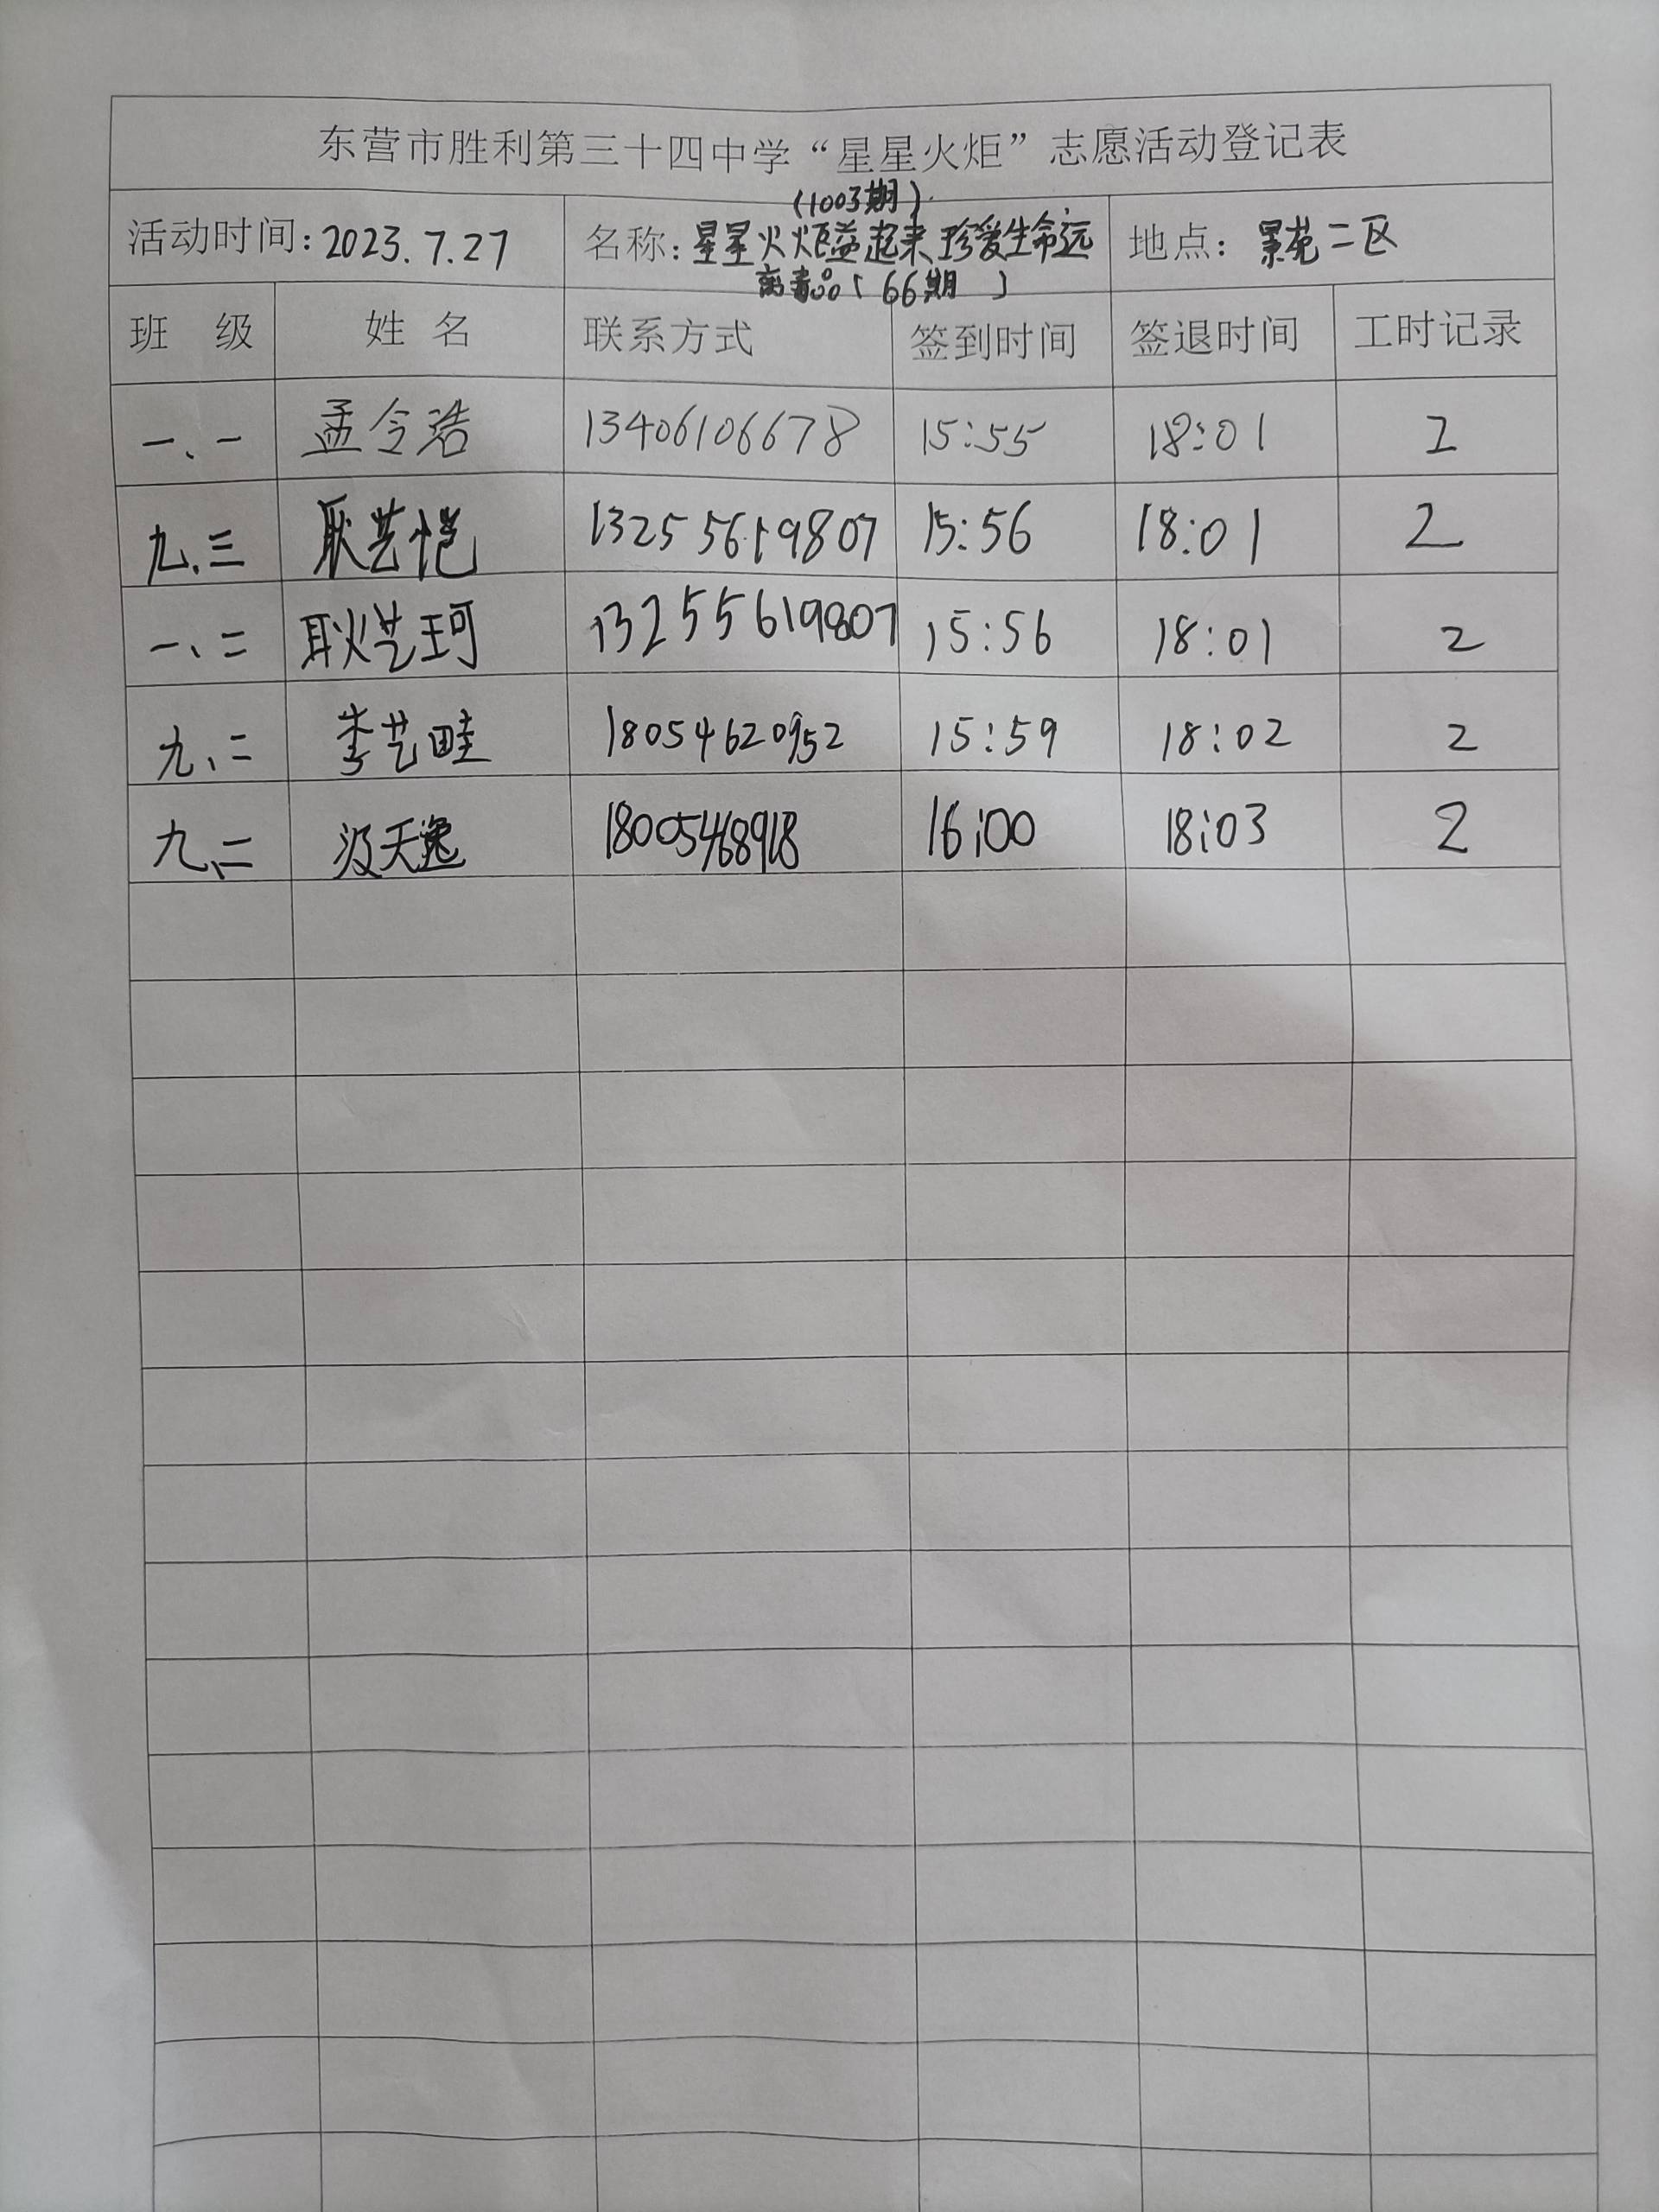 东营市胜利第三十四中学“星星火炬”志愿活动登记表
(1003期)
活动时间:2023.7.27 名称:星星火炬益起来珍爱生命远 地点:景苑二区
离毒品(66期)
班 级 姓 名 联系方式 签到时间 签退时间 工时记录
一、一 孟令浩 13406106678 15:55 18:01 2
九、三 耿艺恺 13255619807 15:56 18:01 2
一、二 耿艺珂 13255619807 15:56 18:01 2
九、二 李艺畦 18054620952 15:59 18:02 2
九、二 汲天逸 16:00 18:03 2